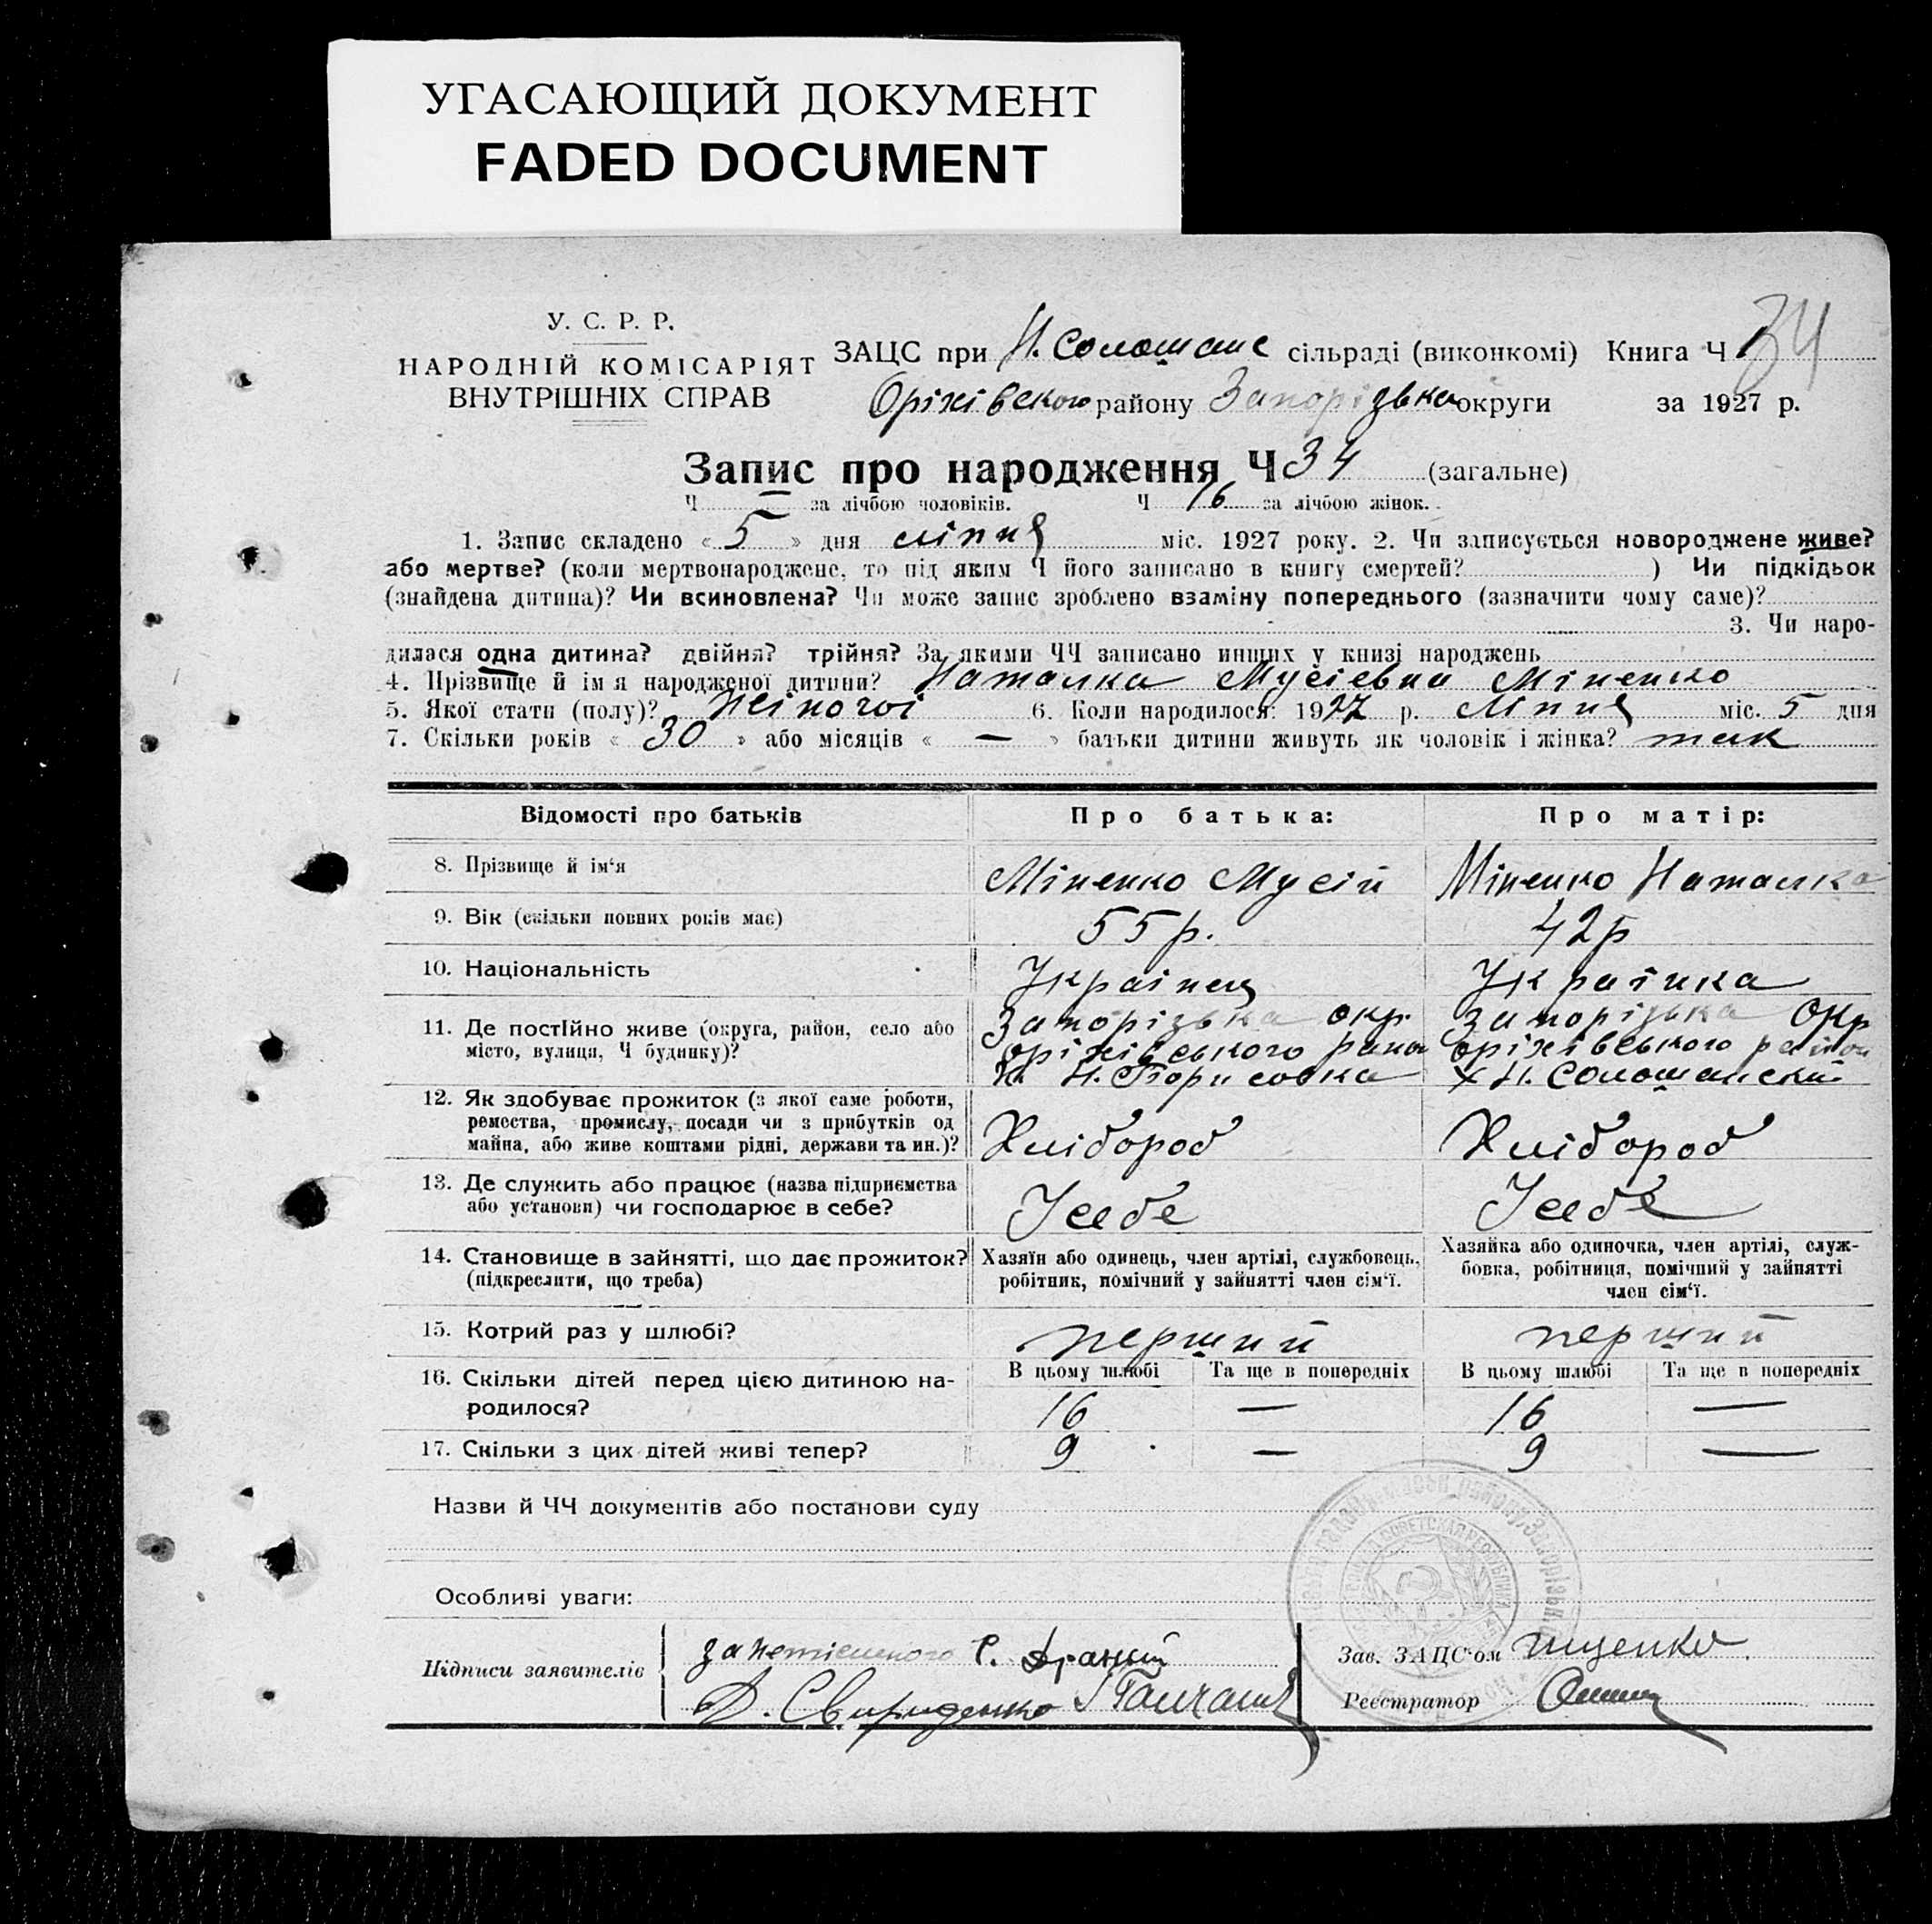 УГАСАЮЩИЙ ДОКУМЕНТ
FADED DOCUMENT
У. С. Р. Р.
НАРОДНІЙ КОМІСАРІЯТ
ВНУТРІШНІХ СПРАВ
ЗАЦС при Н. Солошане сільраді (виконкомі) Книга Ч 34
Оріхівского району Запорізька округи за 1927 р.
Запис про народження Ч 34 (загальне)
Ч — за лічбою чоловіків. Ч 16 за лічбою жінок.
1. Запис складено « 5 » дня ліпня міс. 1927 року. 2. Чи записується новороджене живе?
або мертве? (коли мертвонароджене, то під яким Ч його записано в книгу смертей? ) Чи підкідьок
(знайдена дитина)? Чи всиновлена? Чи може запис зроблено взаміну попереднього (зазначити чому саме)?
3. Чи наро-
дилася одна дитина? двійня? трійня? За якими ЧЧ записано инших у книзі народжень
4. Прізвище й ім я народженої дитини? Наталка Мусієвна Міненко
5. Якої стати (полу)? жіночої 6. Коли народилося: 1927 р. ліпня міс. 5 дня
7. Скільки років « 30 » або місяців « — » батьки дитини живуть як чоловік і жінка? так
Відомості про батьків Про батька: Про матір:
8. Прізвище й ім‘я Міненко Мусій Міненко Наталка
9. Вік (скільки повних років має) 55 р. 42 р
10. Національність Українец Українка
11. Де постійно живе (округа, район, село або Запорізька окр. Запорізька Окр
місто, вулиця, Ч будинку)? Оріхівського район Оріхівського район
х. Н. Борисовка х Н. Солошанский
12. Як здобуває прожиток (з якої саме роботи,
ремества, промислу, посади чи з прибутків од
майна, або живе коштами рідні, держави та ин.)? Хлібороб Хлібороб
13. Де служить або працює (назва підприємства
або установи) чи господарює в себе? Усебе Усебе
14. Становище в зайнятті, що дає прожиток? Хазяїн або одинець, член артілі, службовець, Хазяйка або одиночка, член артілі, служ-
(підкреслити, що треба) робітник, помічний у зайнятті член сім‘ї. бовка, робітниця, помічний у зайнятті
член сім‘ї.
15. Котрий раз у шлюбі? перший перший
16. Скільки дітей перед цією дитиною на- В цьому шлюбі Та ще в попередніх В цьому шлюбі Та ще в попередніх
родилося? 16 — 16 —
17. Скільки з цих дітей живі тепер? 9 — 9 —
Назви й ЧЧ документів або постанови суду
Особливі уваги:
Підписи заявителів С. Драний Зав. ЗАЦС‘ом Тищенко
Д. Свириденко Реєстратор